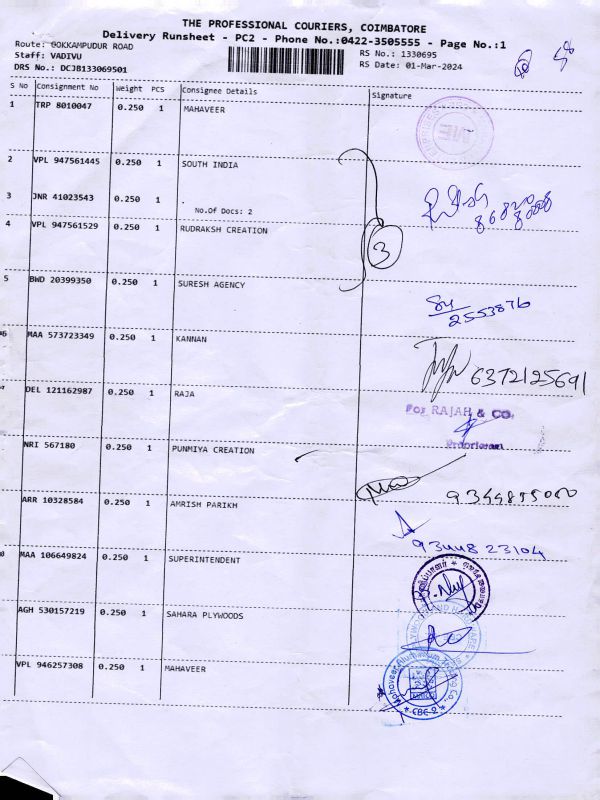 THE PROFESSIONAL COURIERS, COIMBATORE
Delivery Runsheet - PC2 - Phone No.:0422-3505555 - Page No.:1
Route: GOKKAMPUDUR ROAD
RS No.: 1330695
Staff: VADIVU
RS Date: 01-Mar-2024
DRS No.: DCJB133069501
S No Consignment No Weight PCS Consignee Details Signature
1 TRP 8010047 0.250 1 MAHAVEER
2 VPL 947561445 0.250 1 SOUTH INDIA
3 JNR 41023543 0.250 1
No.Of Docs: 2
4 VPL 947561529 0.250 1 RUDRAKSH CREATION
3
5 BWD 20399350 0.250 1 SURESH AGENCY
2553876
MAA 573723349 0.250 1 KANNAN
6372125691
DEL 121162987 0.250 1 RAJA
For RAJAH & CO.
Proprietor
NRI 567180 0.250 1 PUNMIYA CREATION
ARR 10328584 0.250 1 AMRISH PARIKH
93448 23104
MAA 106649824 0.250 1 SUPERINTENDENT
AGH 530157219 0.250 1 SAHARA PLYWOODS
VPL 946257308 0.250 1 MAHAVEER
CBE-2